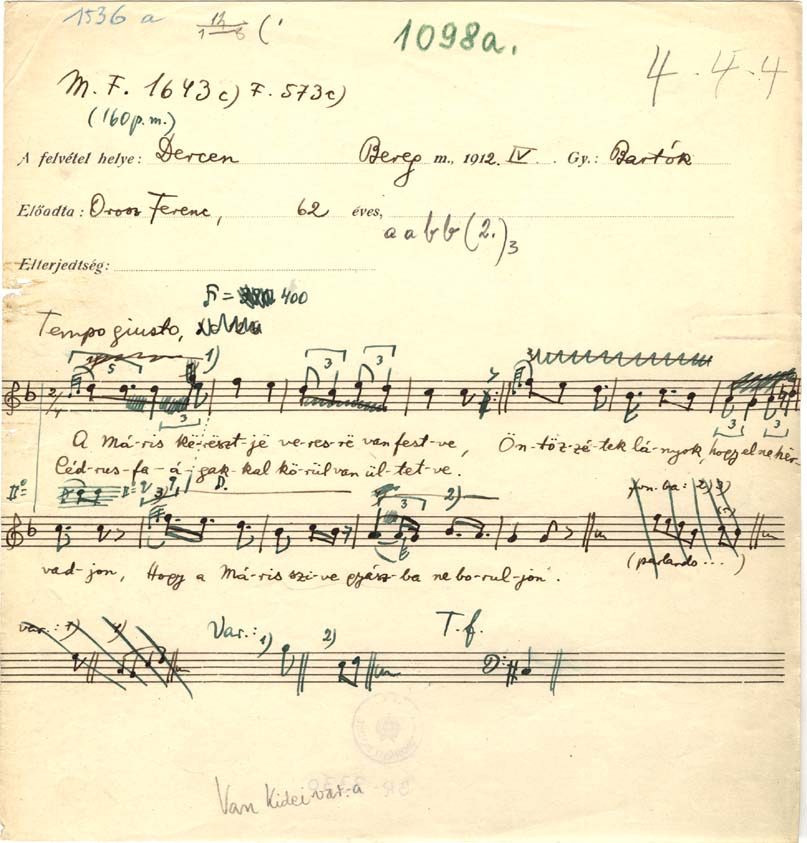 1536 a
1098a.
4 - 4 - 4
M. F. 1643 c) F. 573 c)
(160 p.m.)
A felvétel helye: Dercen Bereg m., 1912. IV. Gy.: Bartók
Előadta: Orosz Ferenc, 62 éves,
a a b b (2.) 3
Elterjedtség:
= 400
Tempo giusto,
5 1) 3 3 3
2/4
3 3 3
A Má-ris kë-rësztjë ve-res-rë van fest-ve, Ön-töz-zé-tek lá-nyok, hogy el ne her-
Céd-rus-fa-á-gak-kal kö-rül van ül-tet-ve.
3 2)
vad-jon, Hogy a Má-ris szi-ve gyász-ba ne bo-rul-jon.
(parlando...)
var.: 1)
Var.: 1) 2) T. f.
Van Kidei var.-a